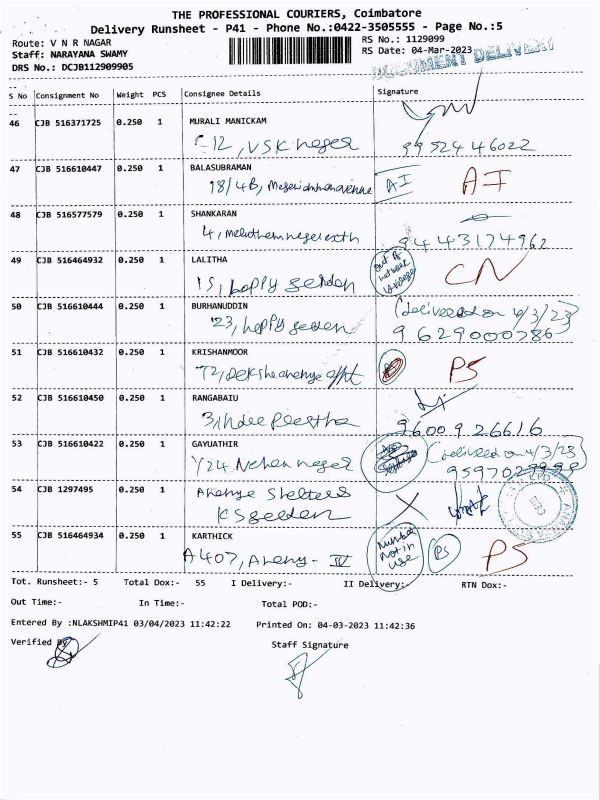 THE PROFESSIONAL COURIERS, Coimbatore
Delivery Runsheet - P41 - Phone No.:0422-3505555 - Page No.:5
Route: V N R NAGAR
RS No.: 1129099
Staff: NARAYANA SWAMY
RS Date: 04-Mar-2023
DRS No.: DCJB112909905
DOCUMENT DELIVERY
S No Consignment No Weight PCS Consignee Details Signature
46 CJB 516371725 0.250 1 MURALI MANICKAM
-12, VSK nager 9952446022
47 CJB 516610447 0.250 1 BALASUBRAMAN
18/4B, AI AI
48 CJB 516577579 0.250 1 SHANKARAN
4, 9443174962
49 CJB 516464932 0.250 1 LALITHA
15, happy garden out of network coverage CN
50 CJB 516610444 0.250 1 BURHANUDDIN (delivered on 4/3/23)
23, happy garden 9629000786
51 CJB 516610432 0.250 1 KRISHANMOOR
T2, appt PS
52 CJB 516610450 0.250 1 RANGABAIU
9600926616
53 CJB 516610422 0.250 1 GAYUATHIR (delivered on 4/3/23)
Y24 Nehru nager
54 CJB 1297495 0.250 1 Ananya Shelters
KS garden X
55 CJB 516464934 0.250 1 KARTHICK
A407, Anany - IV Number not in use PS PS
Tot. Runsheet:- 5 Total Dox:- 55 I Delivery:- II Delivery:- RTN Dox:-
Out Time:- In Time:- Total POD:-
Entered By :NLAKSHMIP41 03/04/2023 11:42:22 Printed On: 04-03-2023 11:42:36
Verified By
Staff Signature